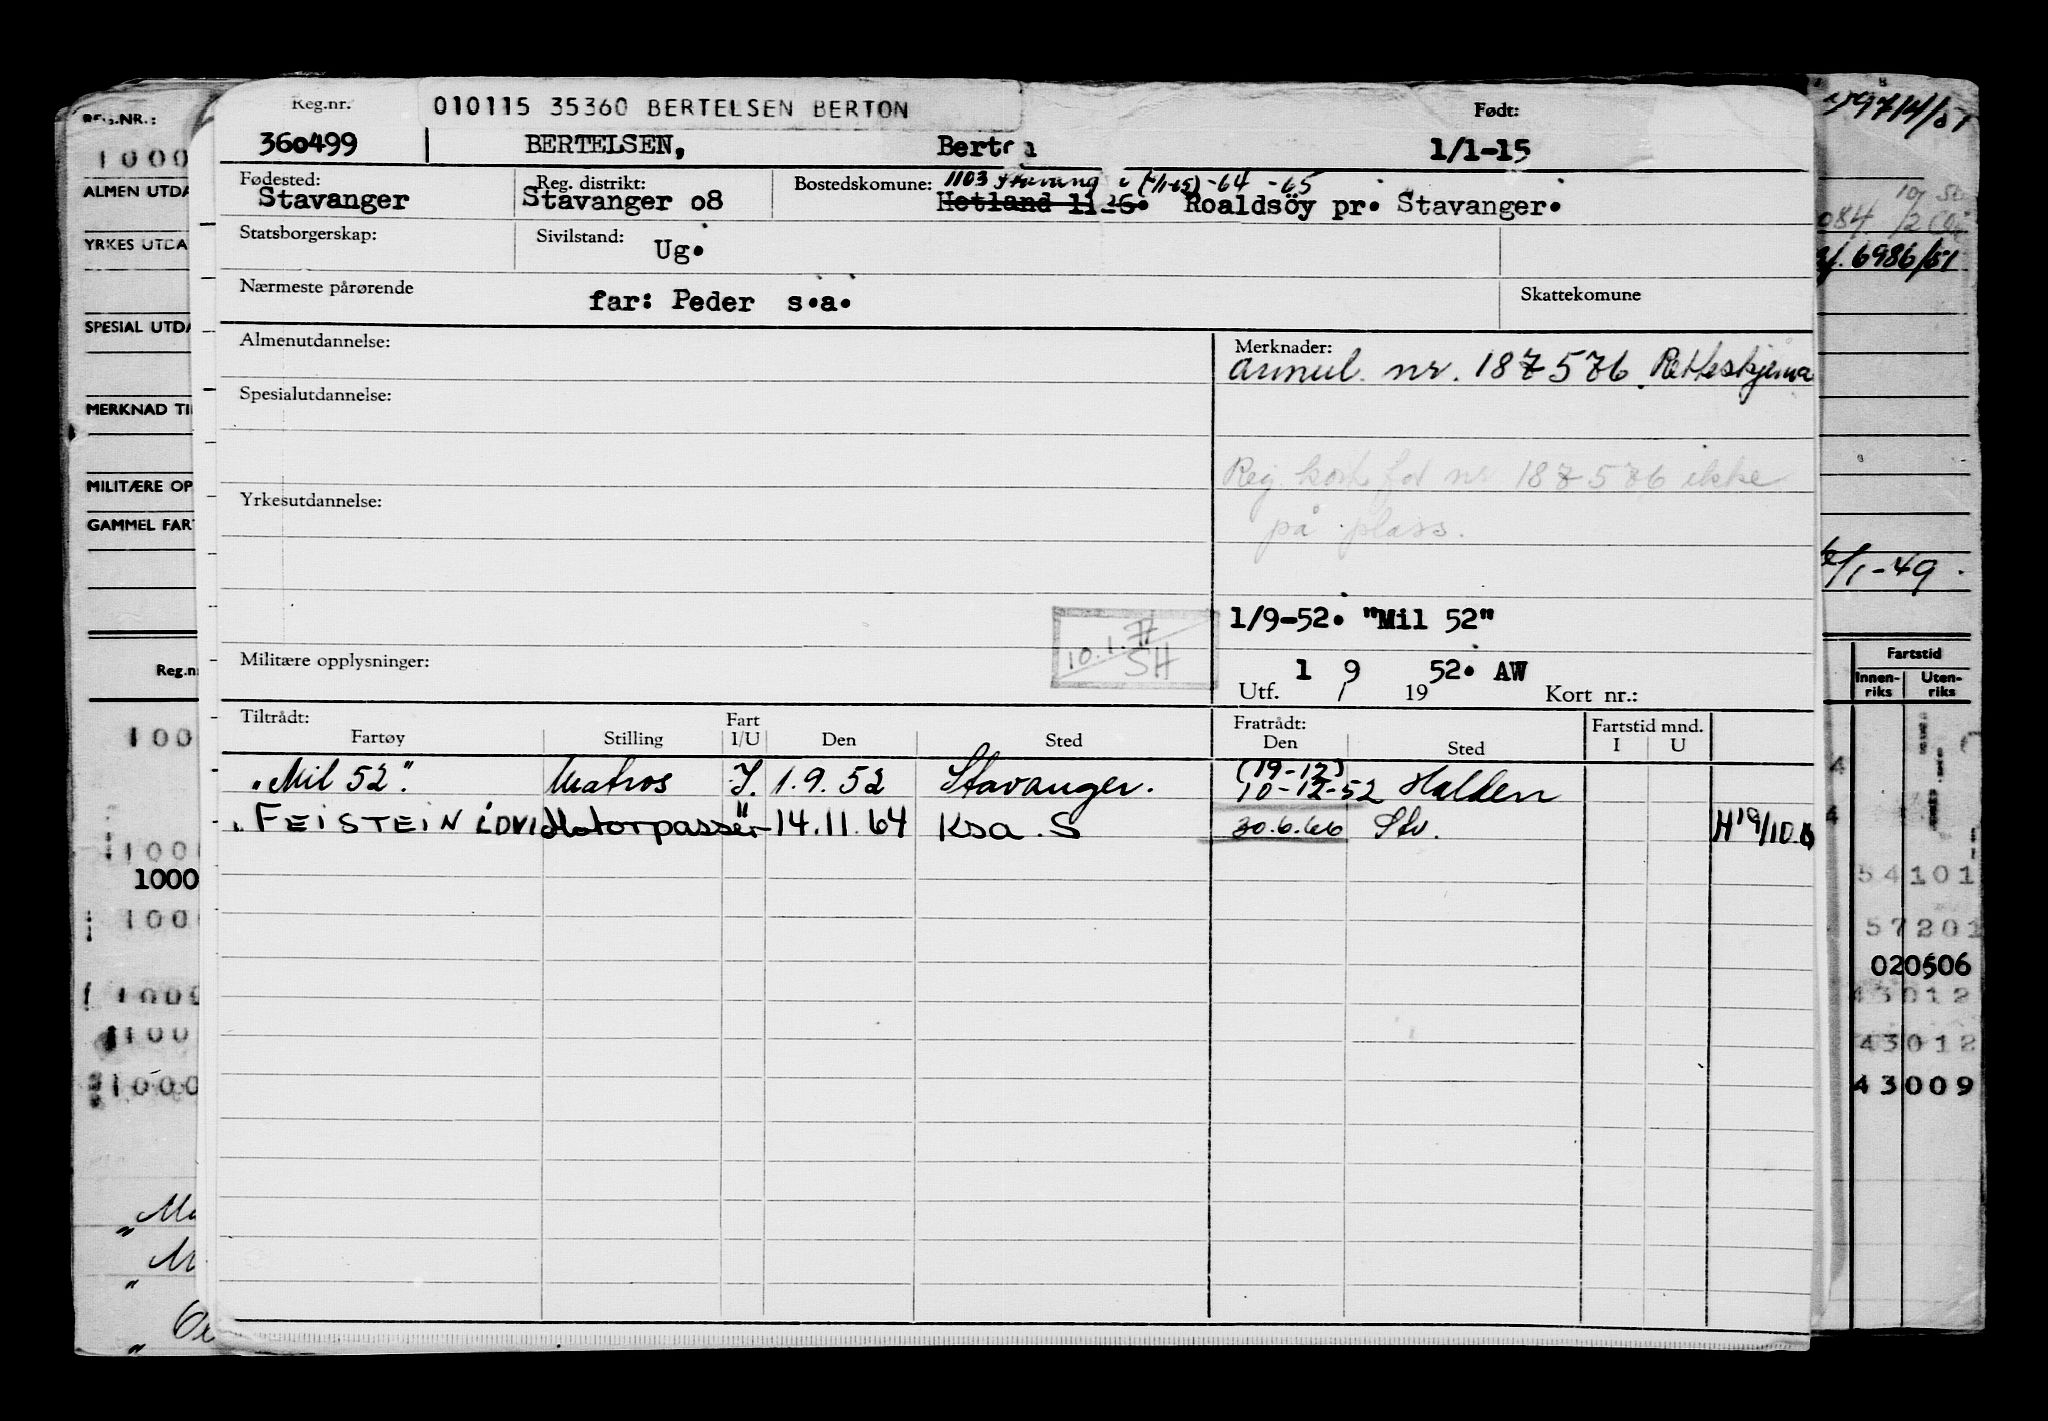 Reg.nr. 010115 35360 BERTELSEN BERTON Født:
360499 BERTELSEN, Berton 1/1-15
Fødested: Reg. distrikt: Bostedskomune: 1103 -64 -65
Stavanger Stavanger 08 Hetland 1126. Roaldsöy pr. Stavanger.
Statsborgerskap: Sivilstand: Ug.
Nærmeste pårørende far: Peder s.a. Skattekomune
Almenutdannelse: Merknader:
annul. nr. 187576. Retteskjema
Spesialutdannelse:
Reg. kort for nr 187576 ikke
på plass.
Yrkesutdannelse:
1/9-52. "Mil 52"
10.1.
SH
Militære opplysninger:
Utf. 1 / 9 19 52. AW Kort nr.:
Tiltrådt: Fart Fratrådt: Fartstid mnd.
Fartøy Stilling I/U Den Sted Den Sted I U
"Mil 52". Matros I. 1.9.52 Stavanger. (19-12) 10-12-52 Halden
"FEISTEIN Motorpasser " 14.11.64 Ksa. S 30.6.66 Stv.
REG.NR.:
1000
ALMEN UTDA
YRKES UTDA
SPESIAL UTDA
MERKNAD TI
MILITÆRE OP
GAMMEL FART
Reg.n
100
100
1000
100
1000
100
1000
6986/51
/1-49
Fartstid
Innen-
riks
Uten-
riks
4
4
54101
57201
020506
43012
43012
43009